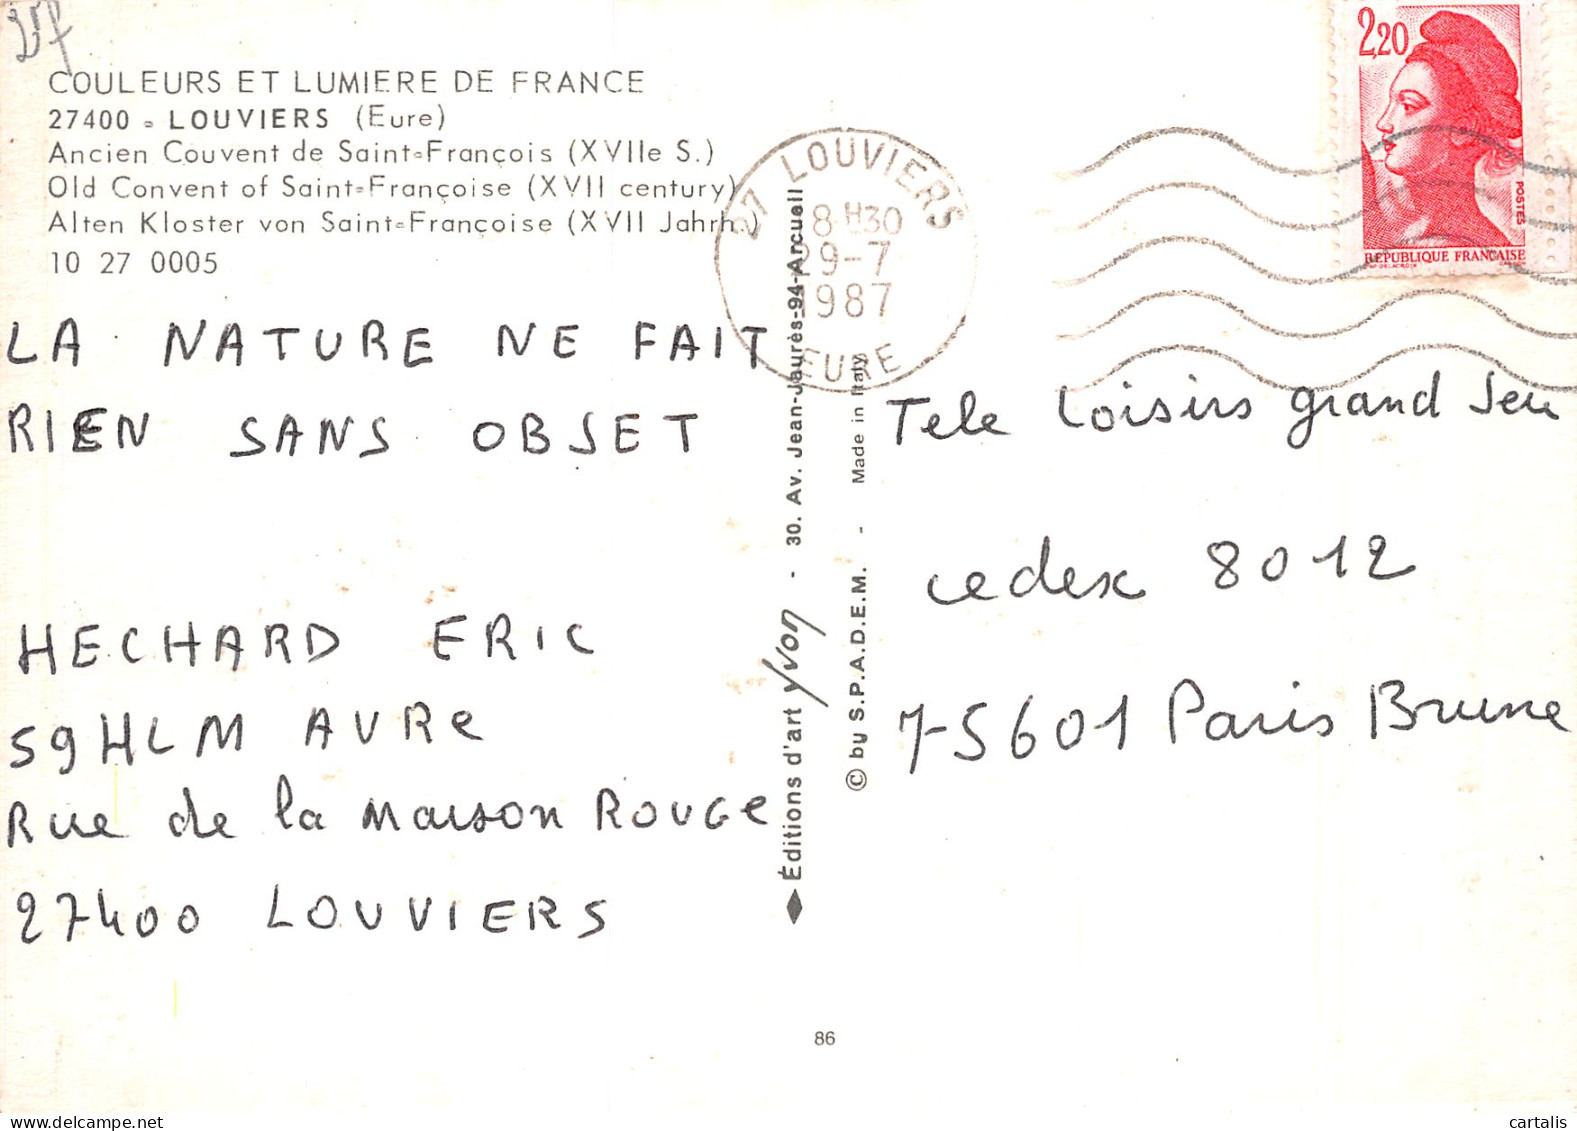 COULEURS ET LUMIERE DE FRANCE
27400 - LOUVIERS (Eure)
Ancien Couvent de Saint-François (XVIIe S.)
Old Convent of Saint-Françoise (XVII century)
Alten Kloster von Saint-Françoise (XVII Jahrh.)
10 27 0005
LA NATURE NE FAIT
RIEN SANS OBJET
HECHARD ERIC
59 HLM AVRE
Rue de la Maison ROUGE
27400 LOUVIERS
27 LOUVIERS
8H30
9-7
1987
EURE
2,20
POSTES
REPUBLIQUE FRANCAISE
Éditions d'art Yvon - 30. Av. Jean-Jaurès-94-Arcueil
© by S.P.A.D.E.M. - Made in Italy
Tele Loisirs grand Jeu
cedex 8012
75601 Paris Brune
86
cartalis
delcampe.net